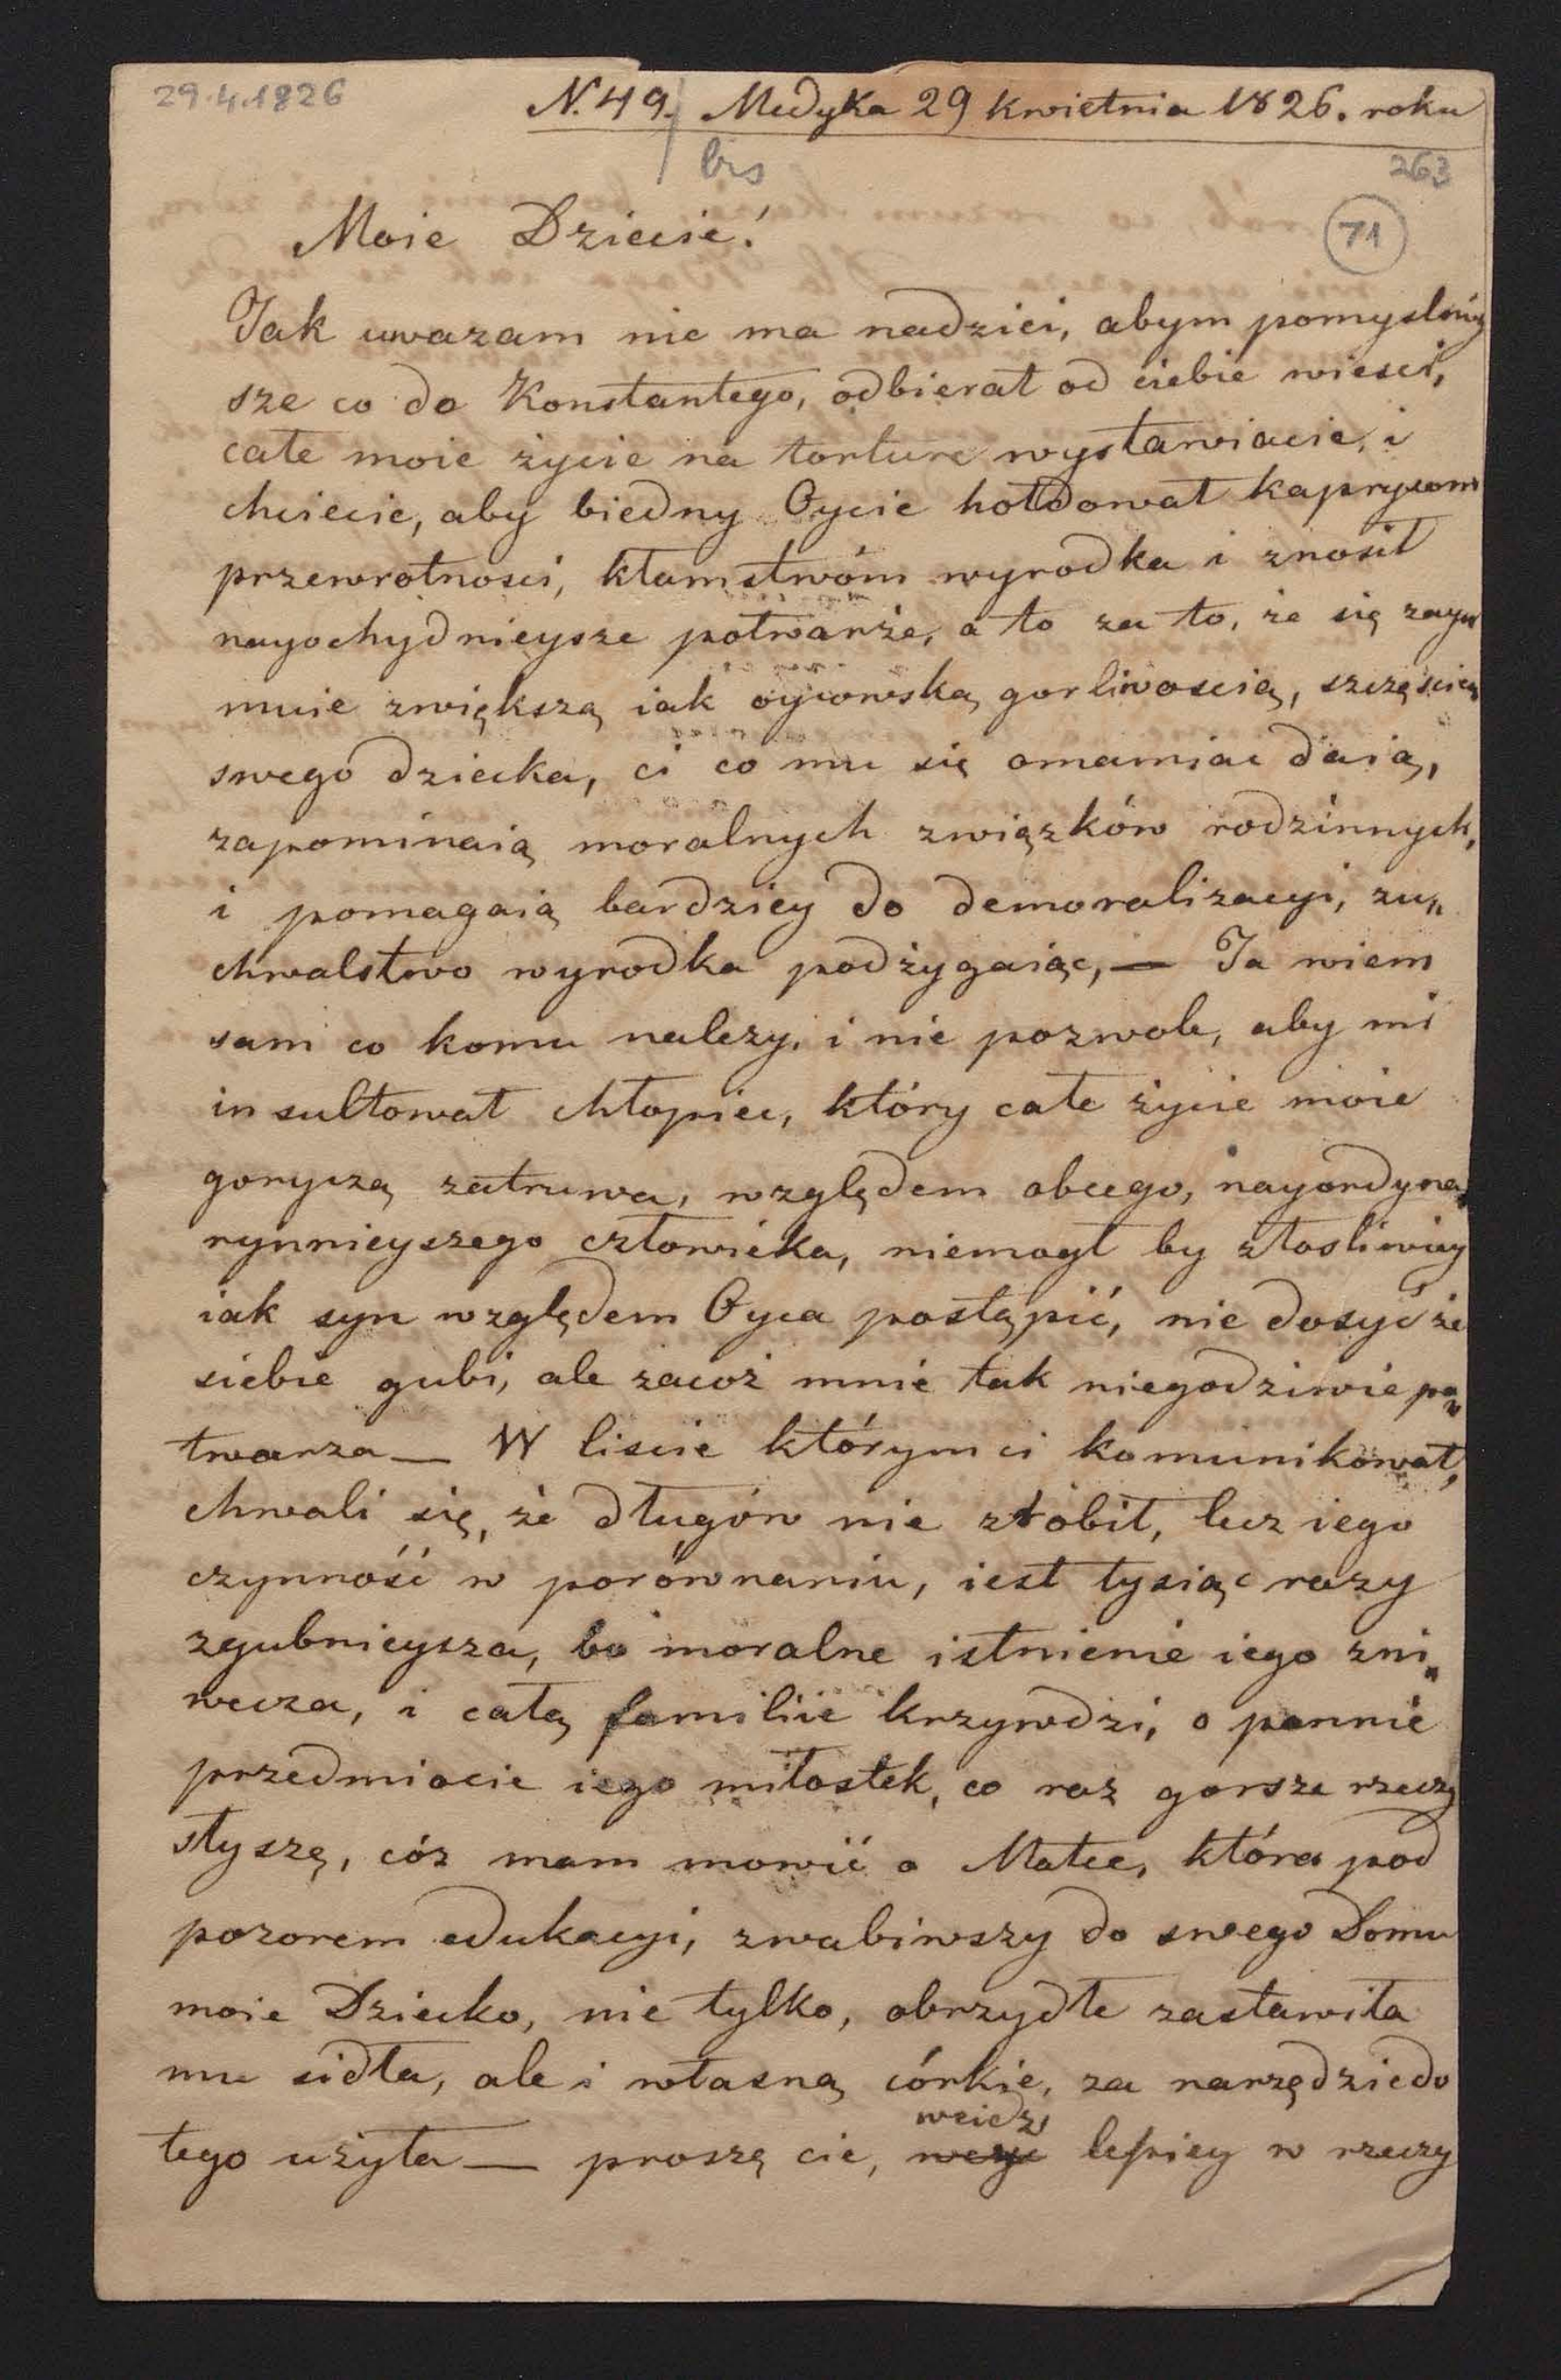 29.4.1826
N. 49. Medyka 29 kwietnia 1826. roku
bis
263
71
Moie Dziecie!
Jak uwazam nie ma nadziei, abym pomyslniey
sze co do Konstantego, odbierał od ciebie wiesci,
całe moie życie na torture wystawiacie, i
chciecie, aby biedny Oycie hołdował kaprysom
przewrotnosci, kłamstwóm wyrodka i znosił
nayochydnieysze potwarże, a to za to, że się zay„
muie zwiększą iak oycowską gorliwoscią, szczęsciem
swego dziecka, ci co mu się omamiac daią,
zapominaią moralnych związków rodzinnych,
i pomagaią bardziey do demoralizacyi, zu„
chwalstwo wyrodka podżygaiąc, — Ja wiem
sam co komu nalezy, i nie pozwole, aby mi
insultował chłopiec, który całe życie moie
goryczą zatruwa, względem obcego, nayordyna„
rynnieyszego człowieka, niemogł by złosliwiey
iak syn względem Oyca postąpić, nie dosyć że
siebie gubi, ale zacoż mnie tak niegodziwie po„
twarza — W liscie którym ci komunikował,
chwali się, że długów nie zrobił, lecz iego
czynność w porównaniu, iest tysiąc razy
zgubnieysza, bo moralne istnienie iego zni„
wecza, i całą familiie krzywdzi, o pannie
przedmiocie iego miłostek, co raz gorsze rzeczy
słyszę, cóz mam mowić o Matce, która pod
pozorem edukacyi, zwabiwszy do swego Domu
moie Dziecko, nie tylko, obrzydłe zastawiła
mu sidła, ale i własną córkie, za narzędzie do
weidź
tego użyła — proszę cie, lepiey w rzeczy